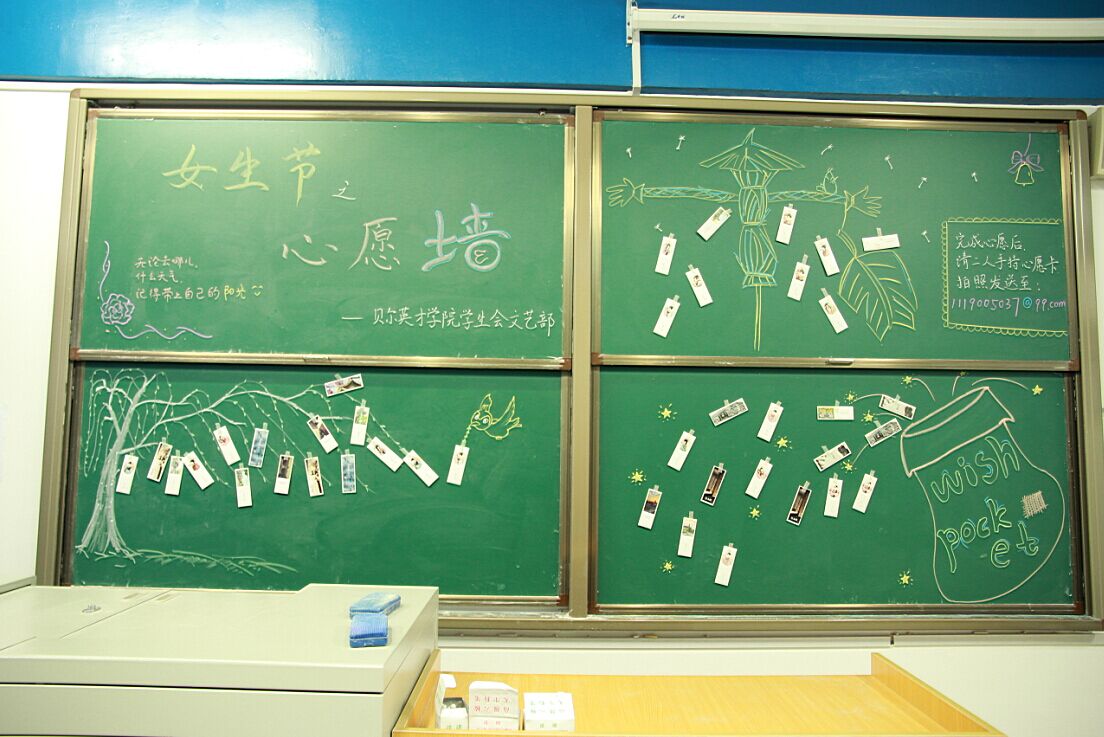 女生节之
心愿墙
无论去哪儿,
什么天气,
记得带上自己的阳光
— 贝尔英才学院学生会文艺部
完成心愿后,
请二人手持心愿卡
拍照发送至:
1119005037@qq.com
wish
pocket